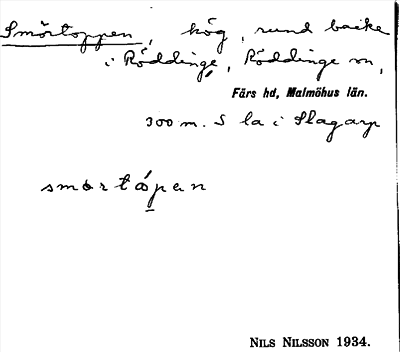 Smörtoppen, hög, rund backe
i Röddinge, Röddinge sn,
Färs hd, Malmöhus län.
300 m. S la i Slagarp
smörtåpen
NILS NILSSON 1934.